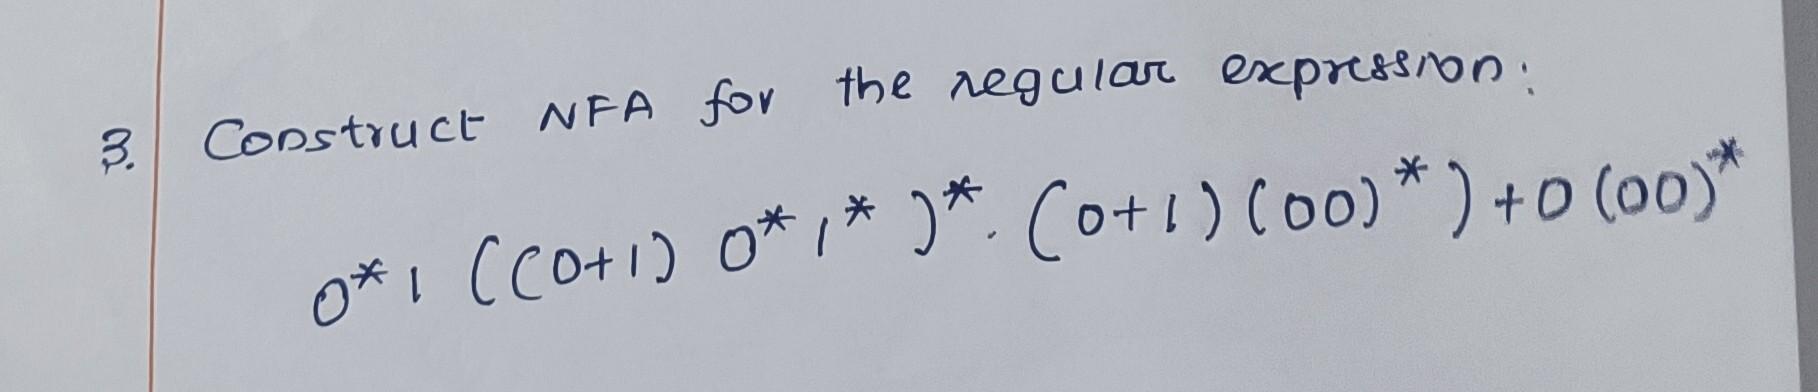 3. Construct NFA for the regular expression:
0* 1 ((0+1) 0* 1* )* . (0+1) (00)* ) + 0 (00)*